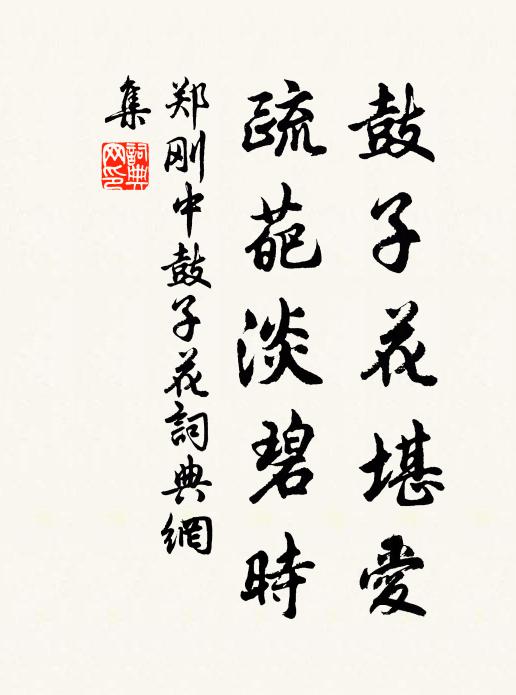 鼓子花堪愛
疏葩淡碧時
郑刚中鼓子花詞典網
集
詞典网印